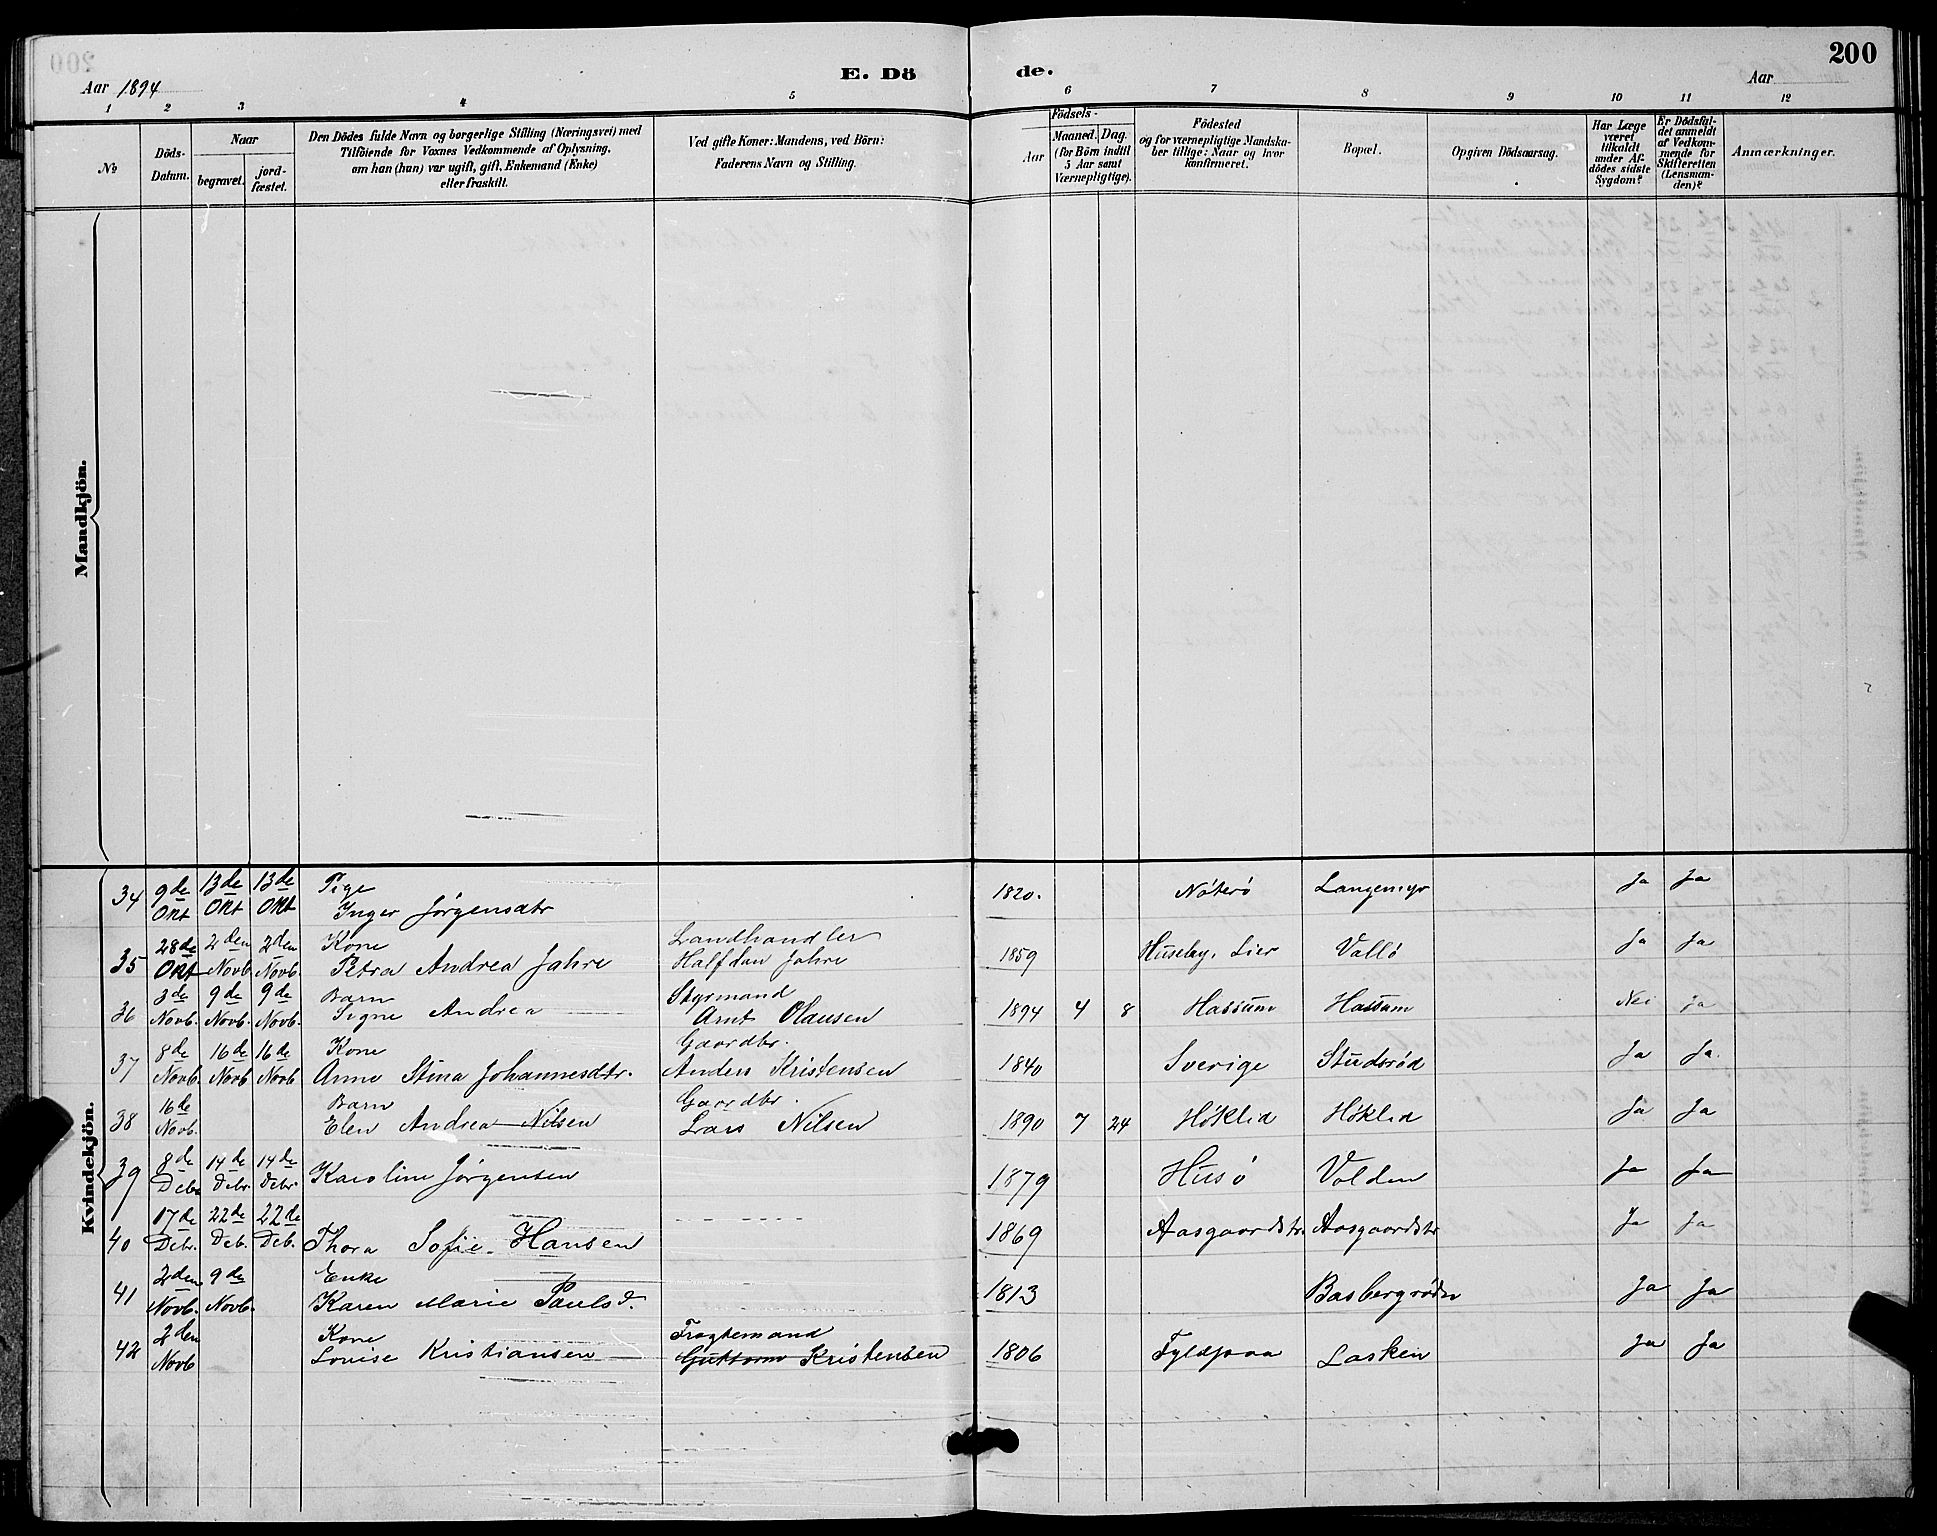 E. Dö de.
200
Aar 1894
Aar
1 2 3 4 5 6 7 8 9 10 11 12
No
Döds-Datum.
Naar
begravet.
jord-fæstet.
Den Dödes fulde Navn og borgerlige Stilling (Næringsvei) med
Tilföiende for Voxnes Vedkommende af Oplysning,
om han (hun) var ugift, gift, Enkemand (Enke)
eller fraskilt.
Ved gifte Koner: Mandens, ved Börn:
Faderens Navn og Stilling.
Födsels-
Aar
Maaned. Dag.
(for Börn indtil
5 Aar samt
Værnepligtige).
Födested
og for værnepligtige Mandska-
ber tillige: Naar og hvor
konfirmeret.
Bopæl.
Opgiven Dödsaarsag.
Har Læge
været
tilkaldt
under Af-
dödes sidste
Sygdom?
Er Dödsfal-
det anmeldt
af Vedkom-
mende for
Skifteretten
(Lensman-
den)?
Anmærkninger.
Mandkjön.
Kvindekjön.
34 9de Okt 13de Okt 13de Okt Pige Inger Jörgensdtr 1820. Nöterö Langemyr Ja Ja
35 28de Okt 2den Novb. 2den Novb. Kone Petra Andrea Jahre Landhandler Halfdan Jahre 1859 Huseby, Lier Vallö Ja Ja
36 3de Novb. 9de Novb. 9de Novb. Barn Signe Andrea Styrmand Arnt Olausen 1894 4 8 Hassum Hassum Nei Ja
37 8de Novb. 16de Novb 16de Novb Kone Anne Stina Johannesdtr. Gaardbr. Anders Kristensen 1840 Sverige Studsröd Ja Ja.
38 16de Novb. Barn Elen Andrea Nilsen Gaardbr. Lars Nilsen 1890 7 24 Höklid Höklid Ja Ja
39 8de Debr 14de Debr. 14de Debr. Karoline Jörgensen 1879 Husö Volden Ja Ja
40 17de Debr. 22de Deb. 22de Deb. Thora Sofie Hansen 1869 Aasgaardstr. Aasgaardstr Ja Ja
41 2den Novb. 9de Novb. Enke Karen Marie Paulsd. 1813 Basbergröden Ja Ja
42 2den Novb Kone Louise Kristiansen Fragtemand Guttorm Kristensen 1806 Fyldpaa Lasken Ja Ja